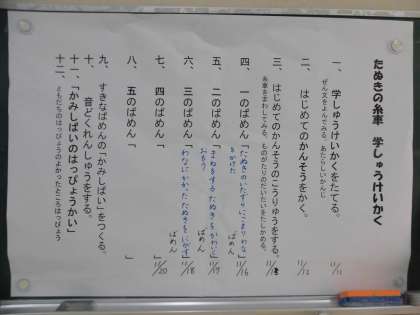 たぬきの糸車 学しゅうけいかく
一、学しゅうけいかくをたてる。 11/11
ぜん文をよんでみる、あたらしいかんじ
二、はじめてのかんそうをかく。 11/12
三、はじめてのかんそうのこうりゅうをする。 11/13
糸車をまわしてみる、ものがたりのだいたいをたしかめる。
四、一のばめん「たぬきのいたずらにこまりわな
をかけた ばめん 」 11/16
五、二のばめん「まねをするたぬきをかわいく
おもう ばめん 」 11/17
六、三のばめん「わなにかかったたぬきをにがす
ばめん 」 11/18
七、四のばめん「 」 11/20
八、五のばめん「 」
九、すきなばめんの「かみしばい」をつくる。
十、音どくれんしゅうをする。
十一、「かみしばいのはっぴょうかい」
十二、ともだちのはっぴょうのよかったところはっぴょう